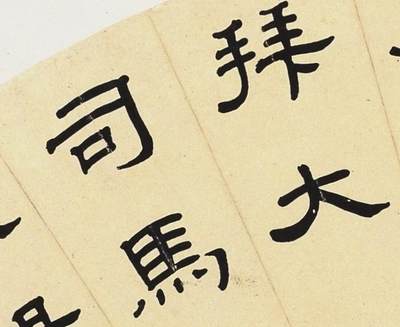 拜大
司馬